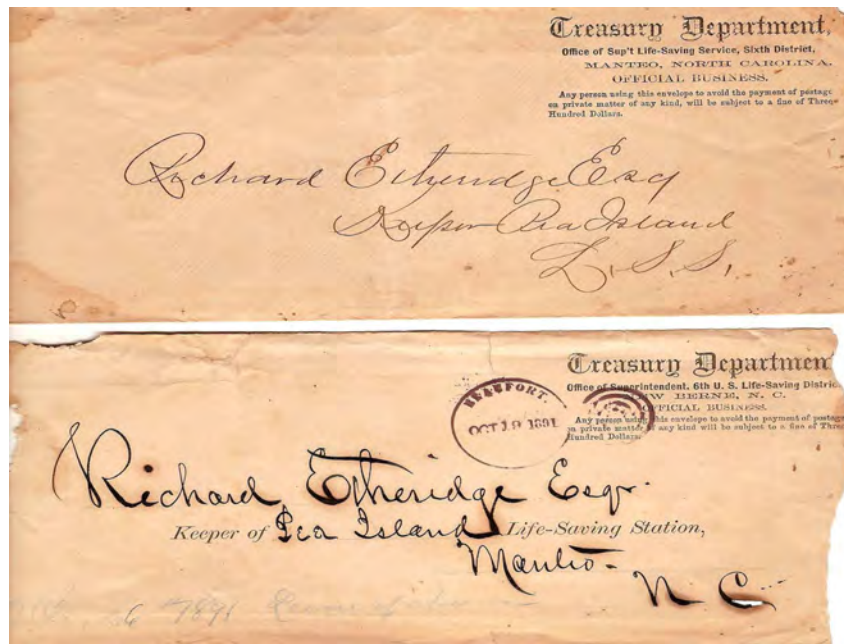 Treasury Department,
Office of Sup't Life-Saving Service, Sixth District,
MANTEO, NORTH CAROLINA.
OFFICIAL BUSINESS.
Any person using this envelope to avoid the payment of postage
on private matter of any kind, will be subject to a fine of Three
Hundred Dollars.
Richard Etheridge Esq
Keeper Pea Island
L. S. S.
Treasury Departmen
Office of Superintendent, 6th U. S. Life-Saving Distric
EW BERNE, N. C.
OFFICIAL BUSINESS.
Any person using this envelope to avoid the payment of postage
on private matter of any kind will be subject to a fine of Three
Hundred Dollars.
BEAUFORT.
OCT 19 1891
Richard Etheridge Esqr.
Keeper of Pea Island Life-Saving Station,
Manteo-
N C